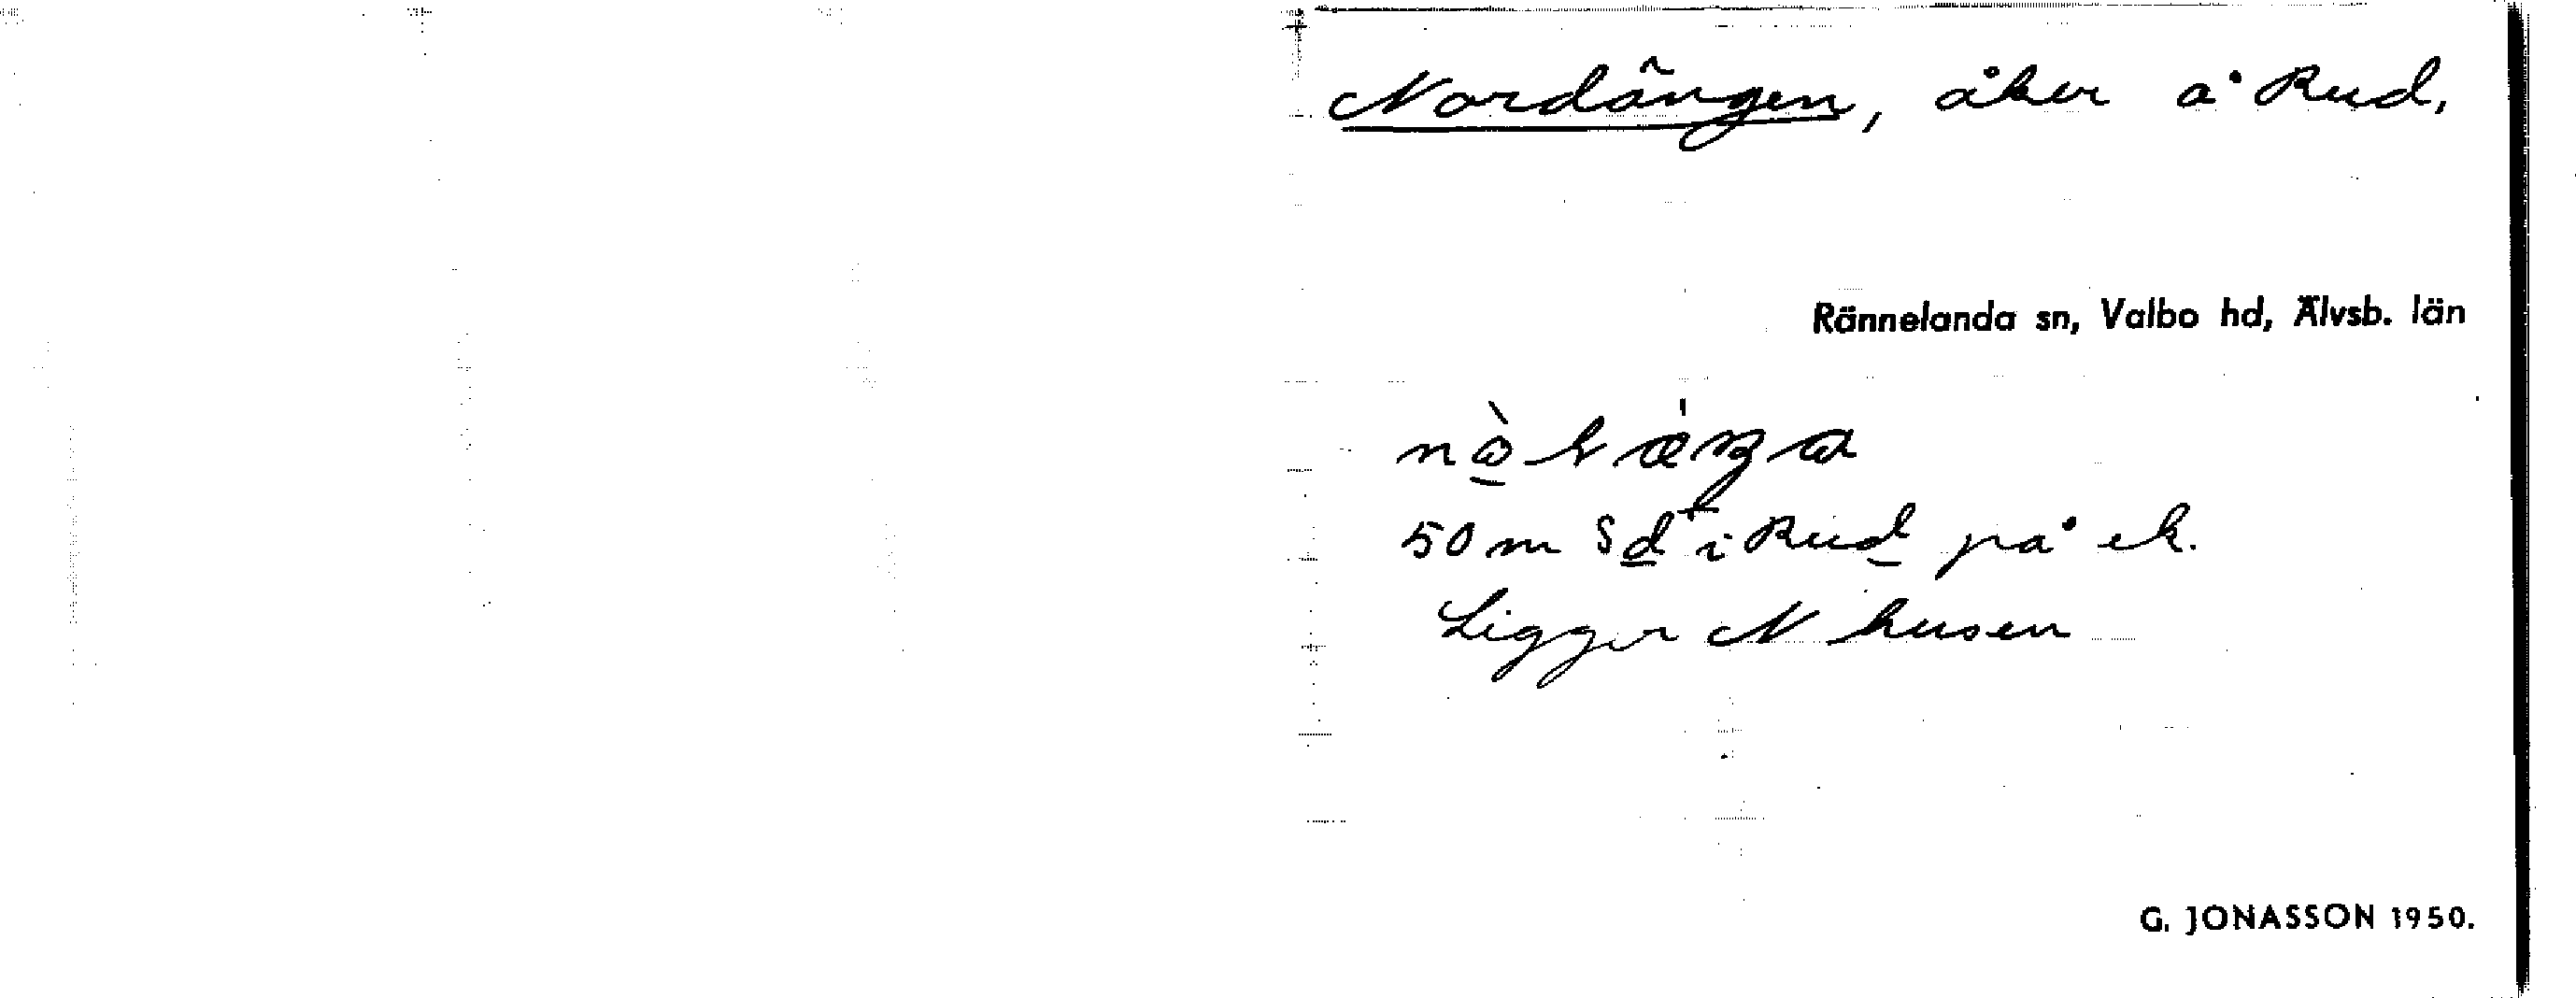 Nordängen, åker å Rud,
Rännelanda sn, Valbo hd, Älvsb. län
50 m Sd i Rud på ek.
Ligger N husen
G. JONASSON 1950.